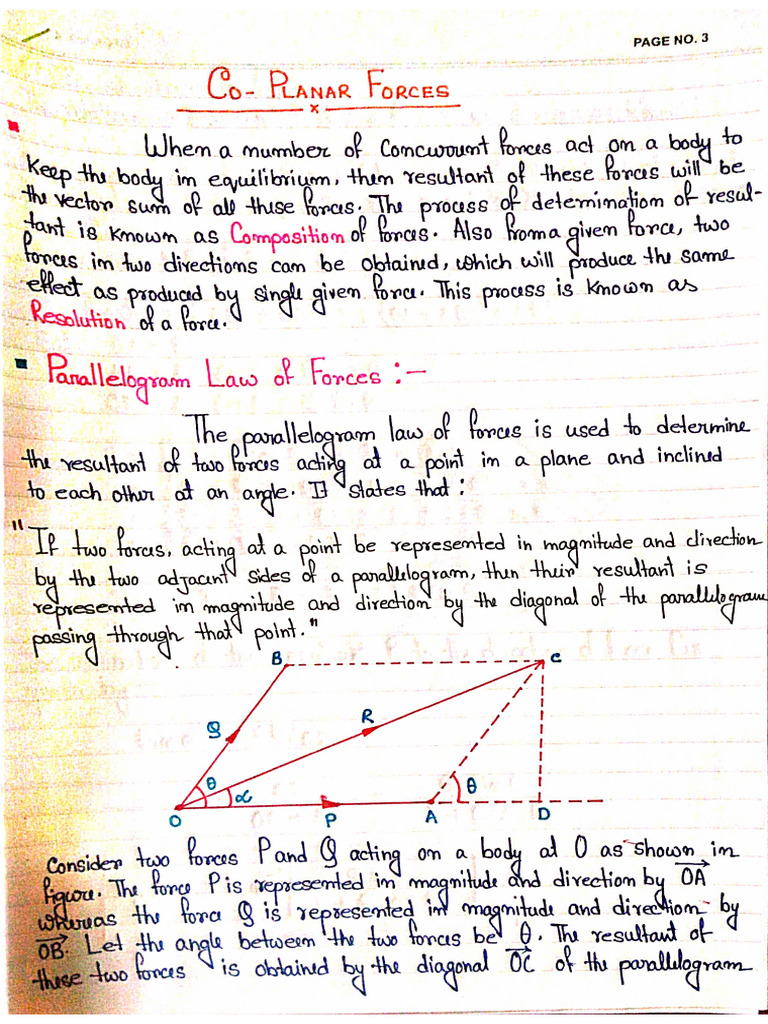 PAGE NO. 3
CO-PLANAR FORCES
x
When a number of concurrent forces act on a body to
keep the body in equilibrium, then resultant of these forces will be
the vector sum of all these forces. The process of determination of resul-
tant is known as Composition of forces. Also from a given force, two
forces in two directions can be obtained, which will produce the same
effect as produced by single given force. This process is known as
Resolution of a force.
Parallelogram Law of Forces :-
The parallelogram law of forces is used to determine
the resultant of two forces acting at a point in a plane and inclined
to each other at an angle. It states that :
"If two forces, acting at a point be represented in magnitude and direction
by the two adjacent sides of a parallelogram, then their resultant is
represented in magnitude and direction by the diagonal of the parallelogram
passing through that point."
B C
Q R
θ α θ
O P A D
Consider two forces P and Q acting on a body at O as shown in
figure. The force P is represented in magnitude and direction by OA
whereas the force Q is represented in magnitude and direction by
OB. Let the angle between the two forces be θ. The resultant of
these two forces is obtained by the diagonal OC of the parallelogram